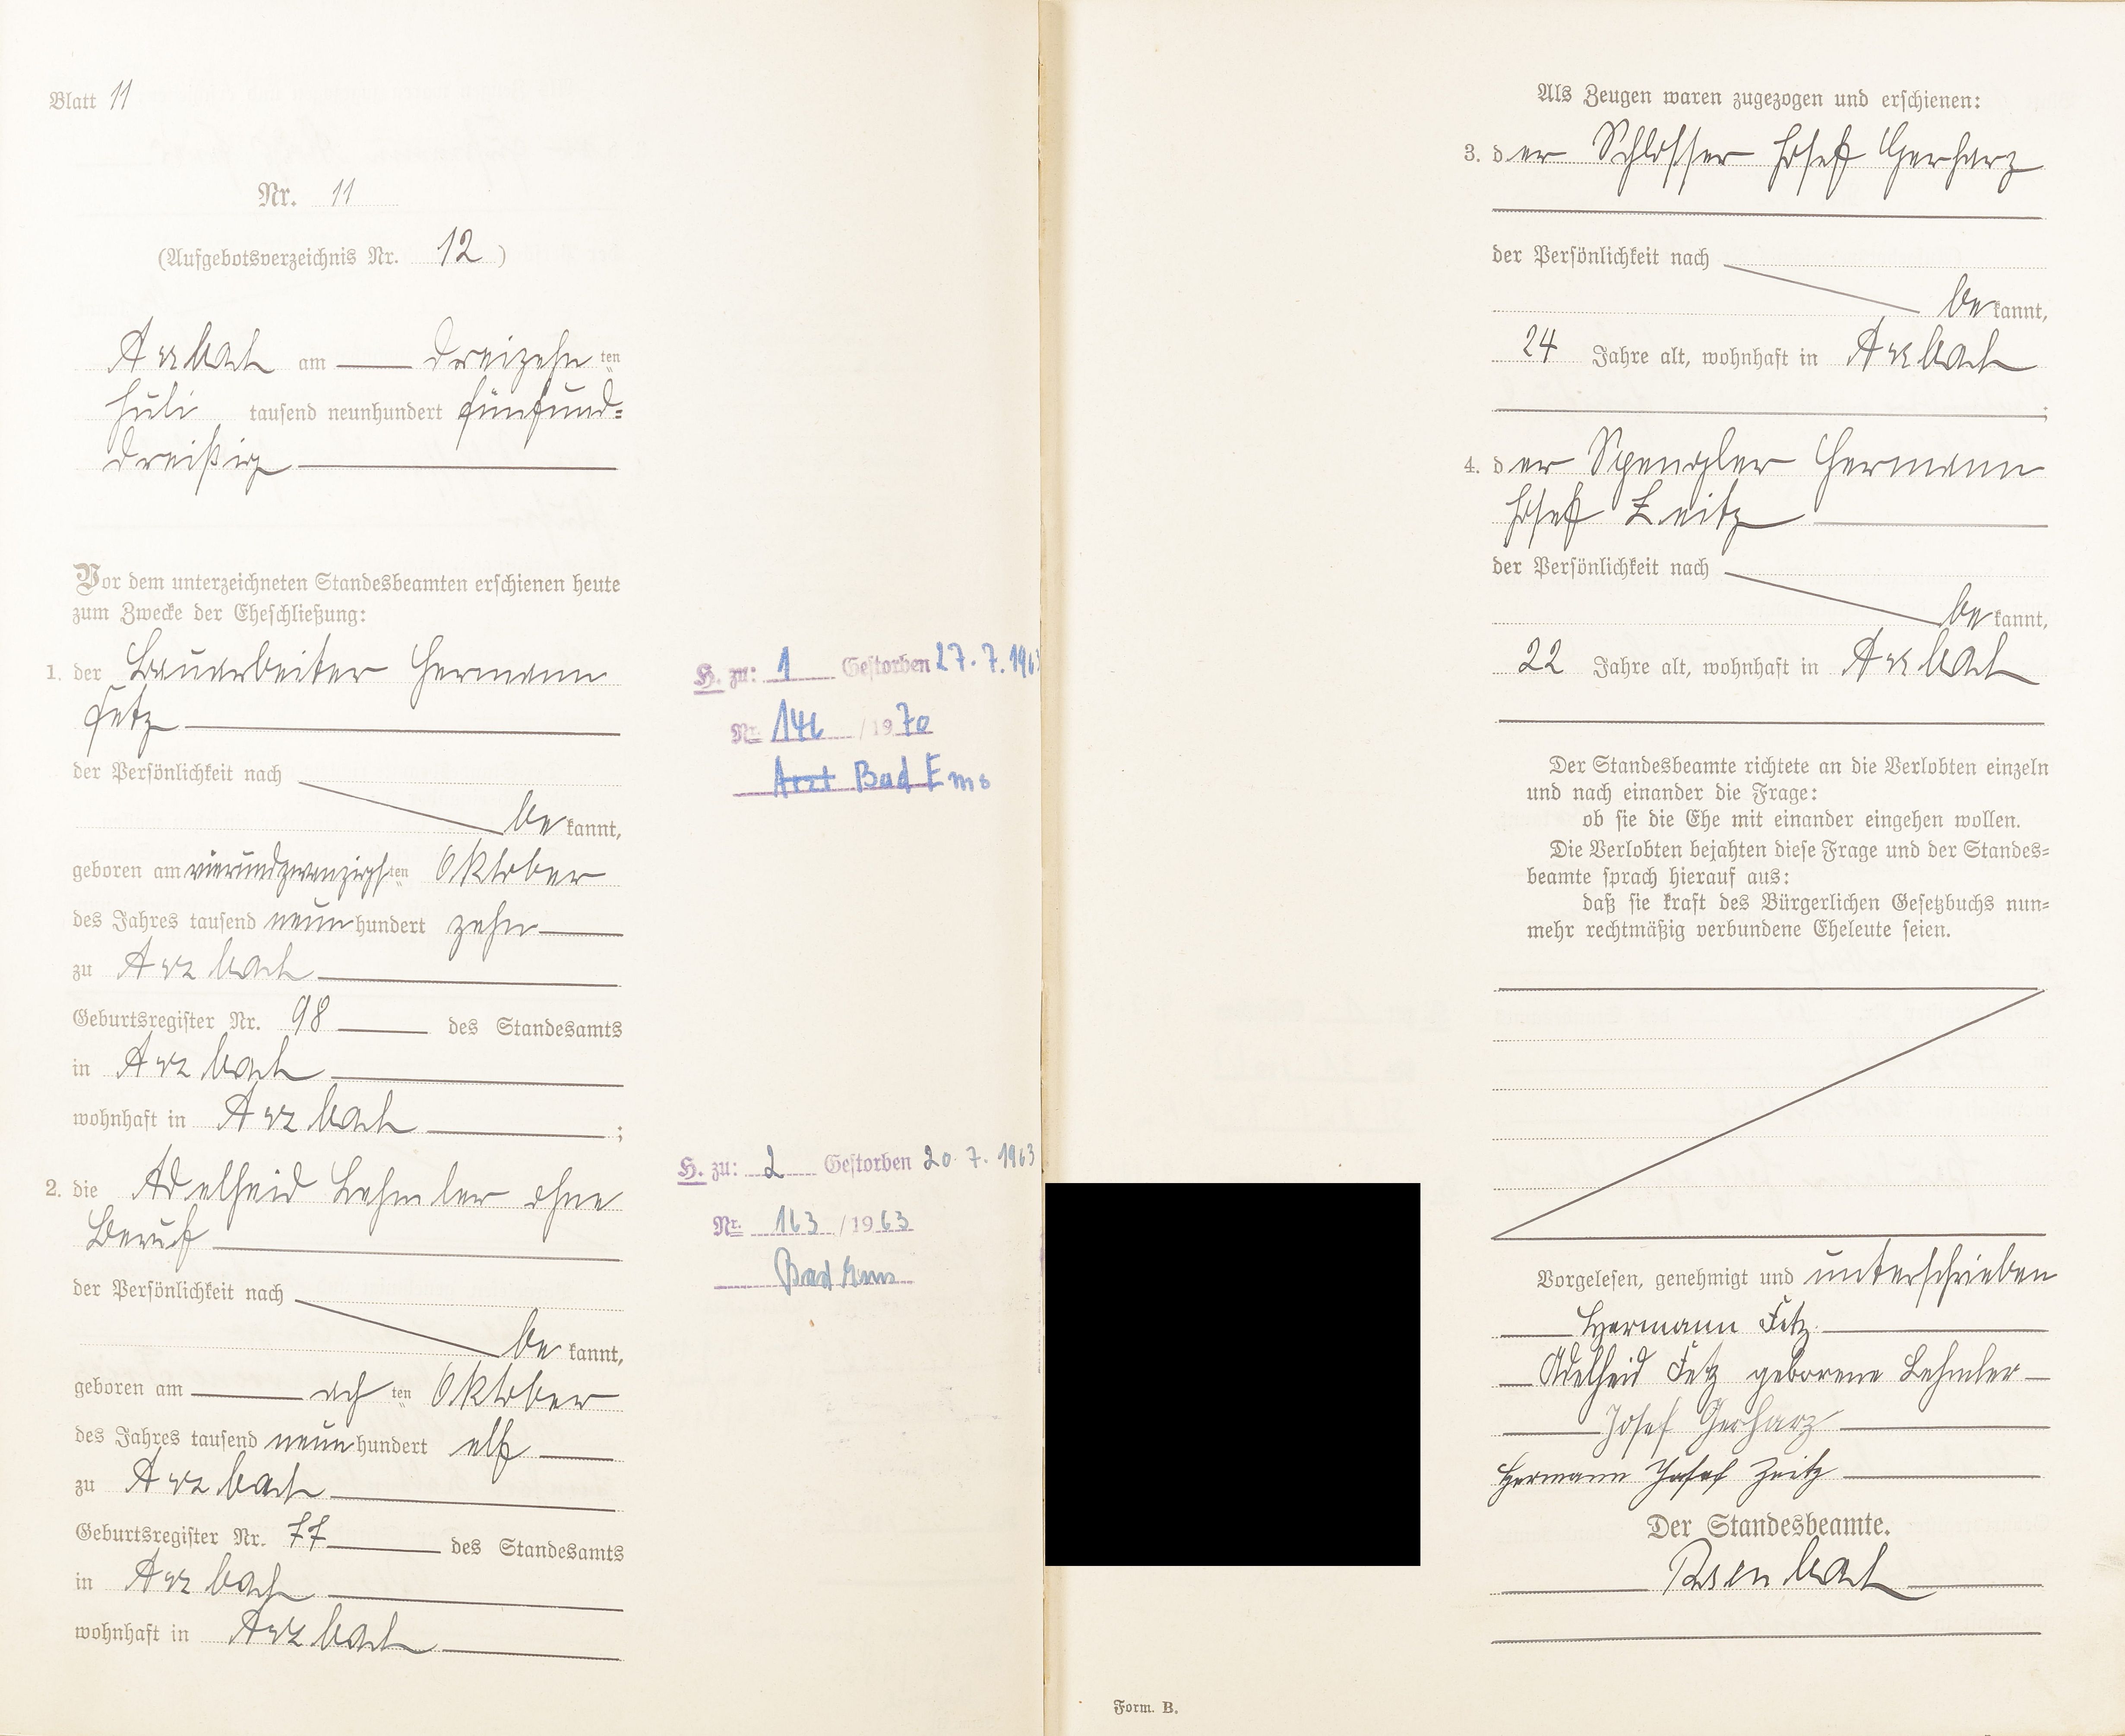 Blatt 11
Nr. 11
(Aufgebotsverzeichnis Nr. 12)
Arzbach am dreizehnten
Juli tausend neunhundert fünfund=
dreißig
Vor dem unterzeichneten Standesbeamten erschienen heute
zum Zwecke der Eheschließung:
1. der Bauarbeiter Hermann
Fetz
der Persönlichkeit nach
bekannt,
geboren am vierundzwanzigsten Oktober
des Jahres tausend neunhundert zehn
zu Arzbach
Geburtsregister Nr. 98 des Standesamts
in Arzbach
wohnhaft in Arzbach ;
2. die Adelheid Lehmler ohne
Beruf
der Persönlichkeit nach
bekannt,
geboren am achten Oktober
des Jahres tausend neunhundert elf
zu Arzbach
Geburtsregister Nr. 77 des Standesamts
in Arzbach
wohnhaft in Arzbach
H. zu: 1 Gestorben 27.7.196
Nr. 146 / 1970
Arzt Bad Ems
H. zu: 2 Gestorben 20.7.1963
Nr. 163 / 1963
Bad Ems
Als Zeugen waren zugezogen und erschienen:
3. der Schlosser Josef Gerharz
der Persönlichkeit nach
bekannt,
24 Jahre alt, wohnhaft in Arzbach
;
4. der Spengler Hermann
Josef Zeitz
der Persönlichkeit nach
bekannt,
22 Jahre alt, wohnhaft in Arzbach
Der Standesbeamte richtete an die Verlobten einzeln
und nach einander die Frage:
ob sie die Ehe mit einander eingehen wollen.
Die Verlobten bejahten diese Frage und der Standes=
beamte sprach hierauf aus:
daß sie kraft des Bürgerlichen Gesetzbuchs nun=
mehr rechtmäßig verbundene Eheleute seien.
Vorgelesen, genehmigt und unterschrieben
Hermann Fetz
Adelheid Fetz geborene Lehmler
Josef Gerharz
Hermann Josef Zeitz
Der Standesbeamte.
Form. B.